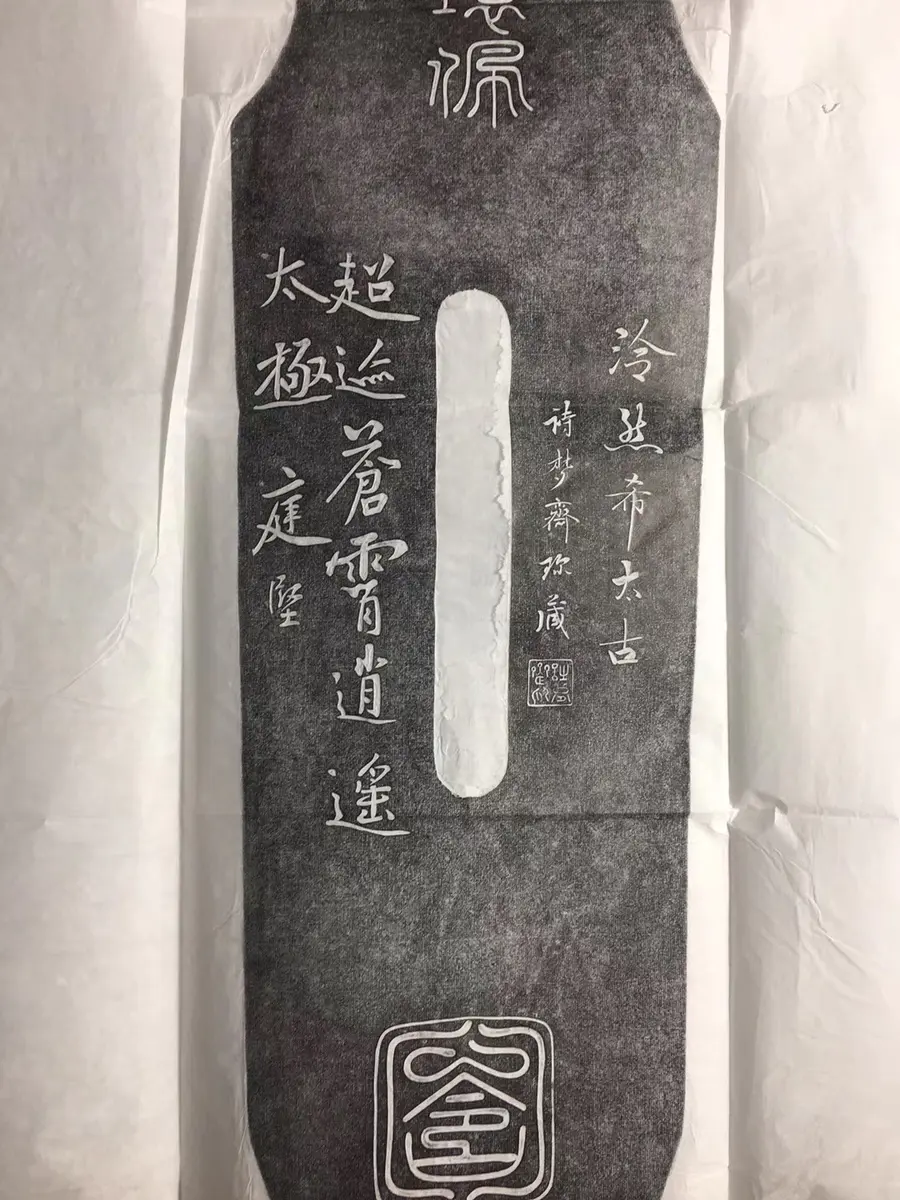 佩
泠然希太古
詩梦齋珎藏
超迹蒼霄逍遥
太極 庭堅